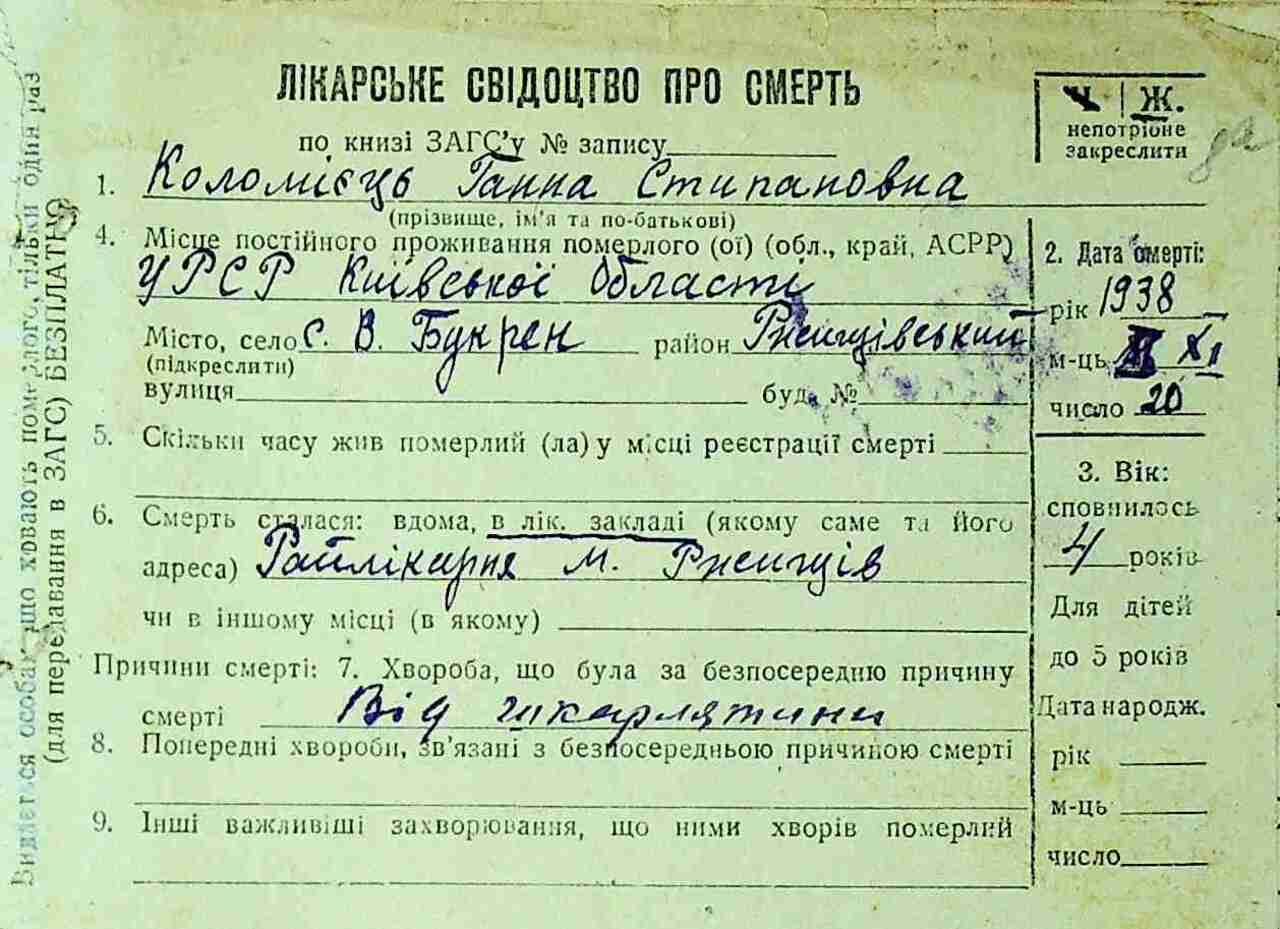 ЛІКАРСЬКЕ СВІДОЦТВО ПРО СМЕРТЬ
Ч. | Ж.
непотрібне
закреслити
по книзі ЗАГС'у № запису
1. Коломієць Ганна Стипановна
(прізвище, ім'я та по-батькові)
4. Місце постійного проживання померлого (ої) (обл., край, АСРР)
УРСР Київської Області
Місто, село с. В. Букрен район Ржищівський
(підкреслити)
вулиця буд. №
5. Скільки часу жив померлий (ла) у місці реєстрації смерті
6. Смерть сталася: вдома, в лік. закладі (якому саме та його
адреса) Райлікарня м. Ржищів
чи в іншому місці (в якому)
Причини смерті: 7. Хвороба, що була за безпосередню причину
смерті Від шкарлятини
8. Попередні хвороби, зв'язані з безпосередньою причиною смерті
9. Інші важливіші захворювання, що ними хворів померлий
2. Дата смерті:
рік 1938
м-ць XI
число 20
3. Вік:
сповнилось
4 років
Для дітей
до 5 років
Дата народж.
рік
м-ць
число
Видається особам, що ховають померлого, тільки один раз
(для передавання в ЗАГС) БЕЗПЛАТНО